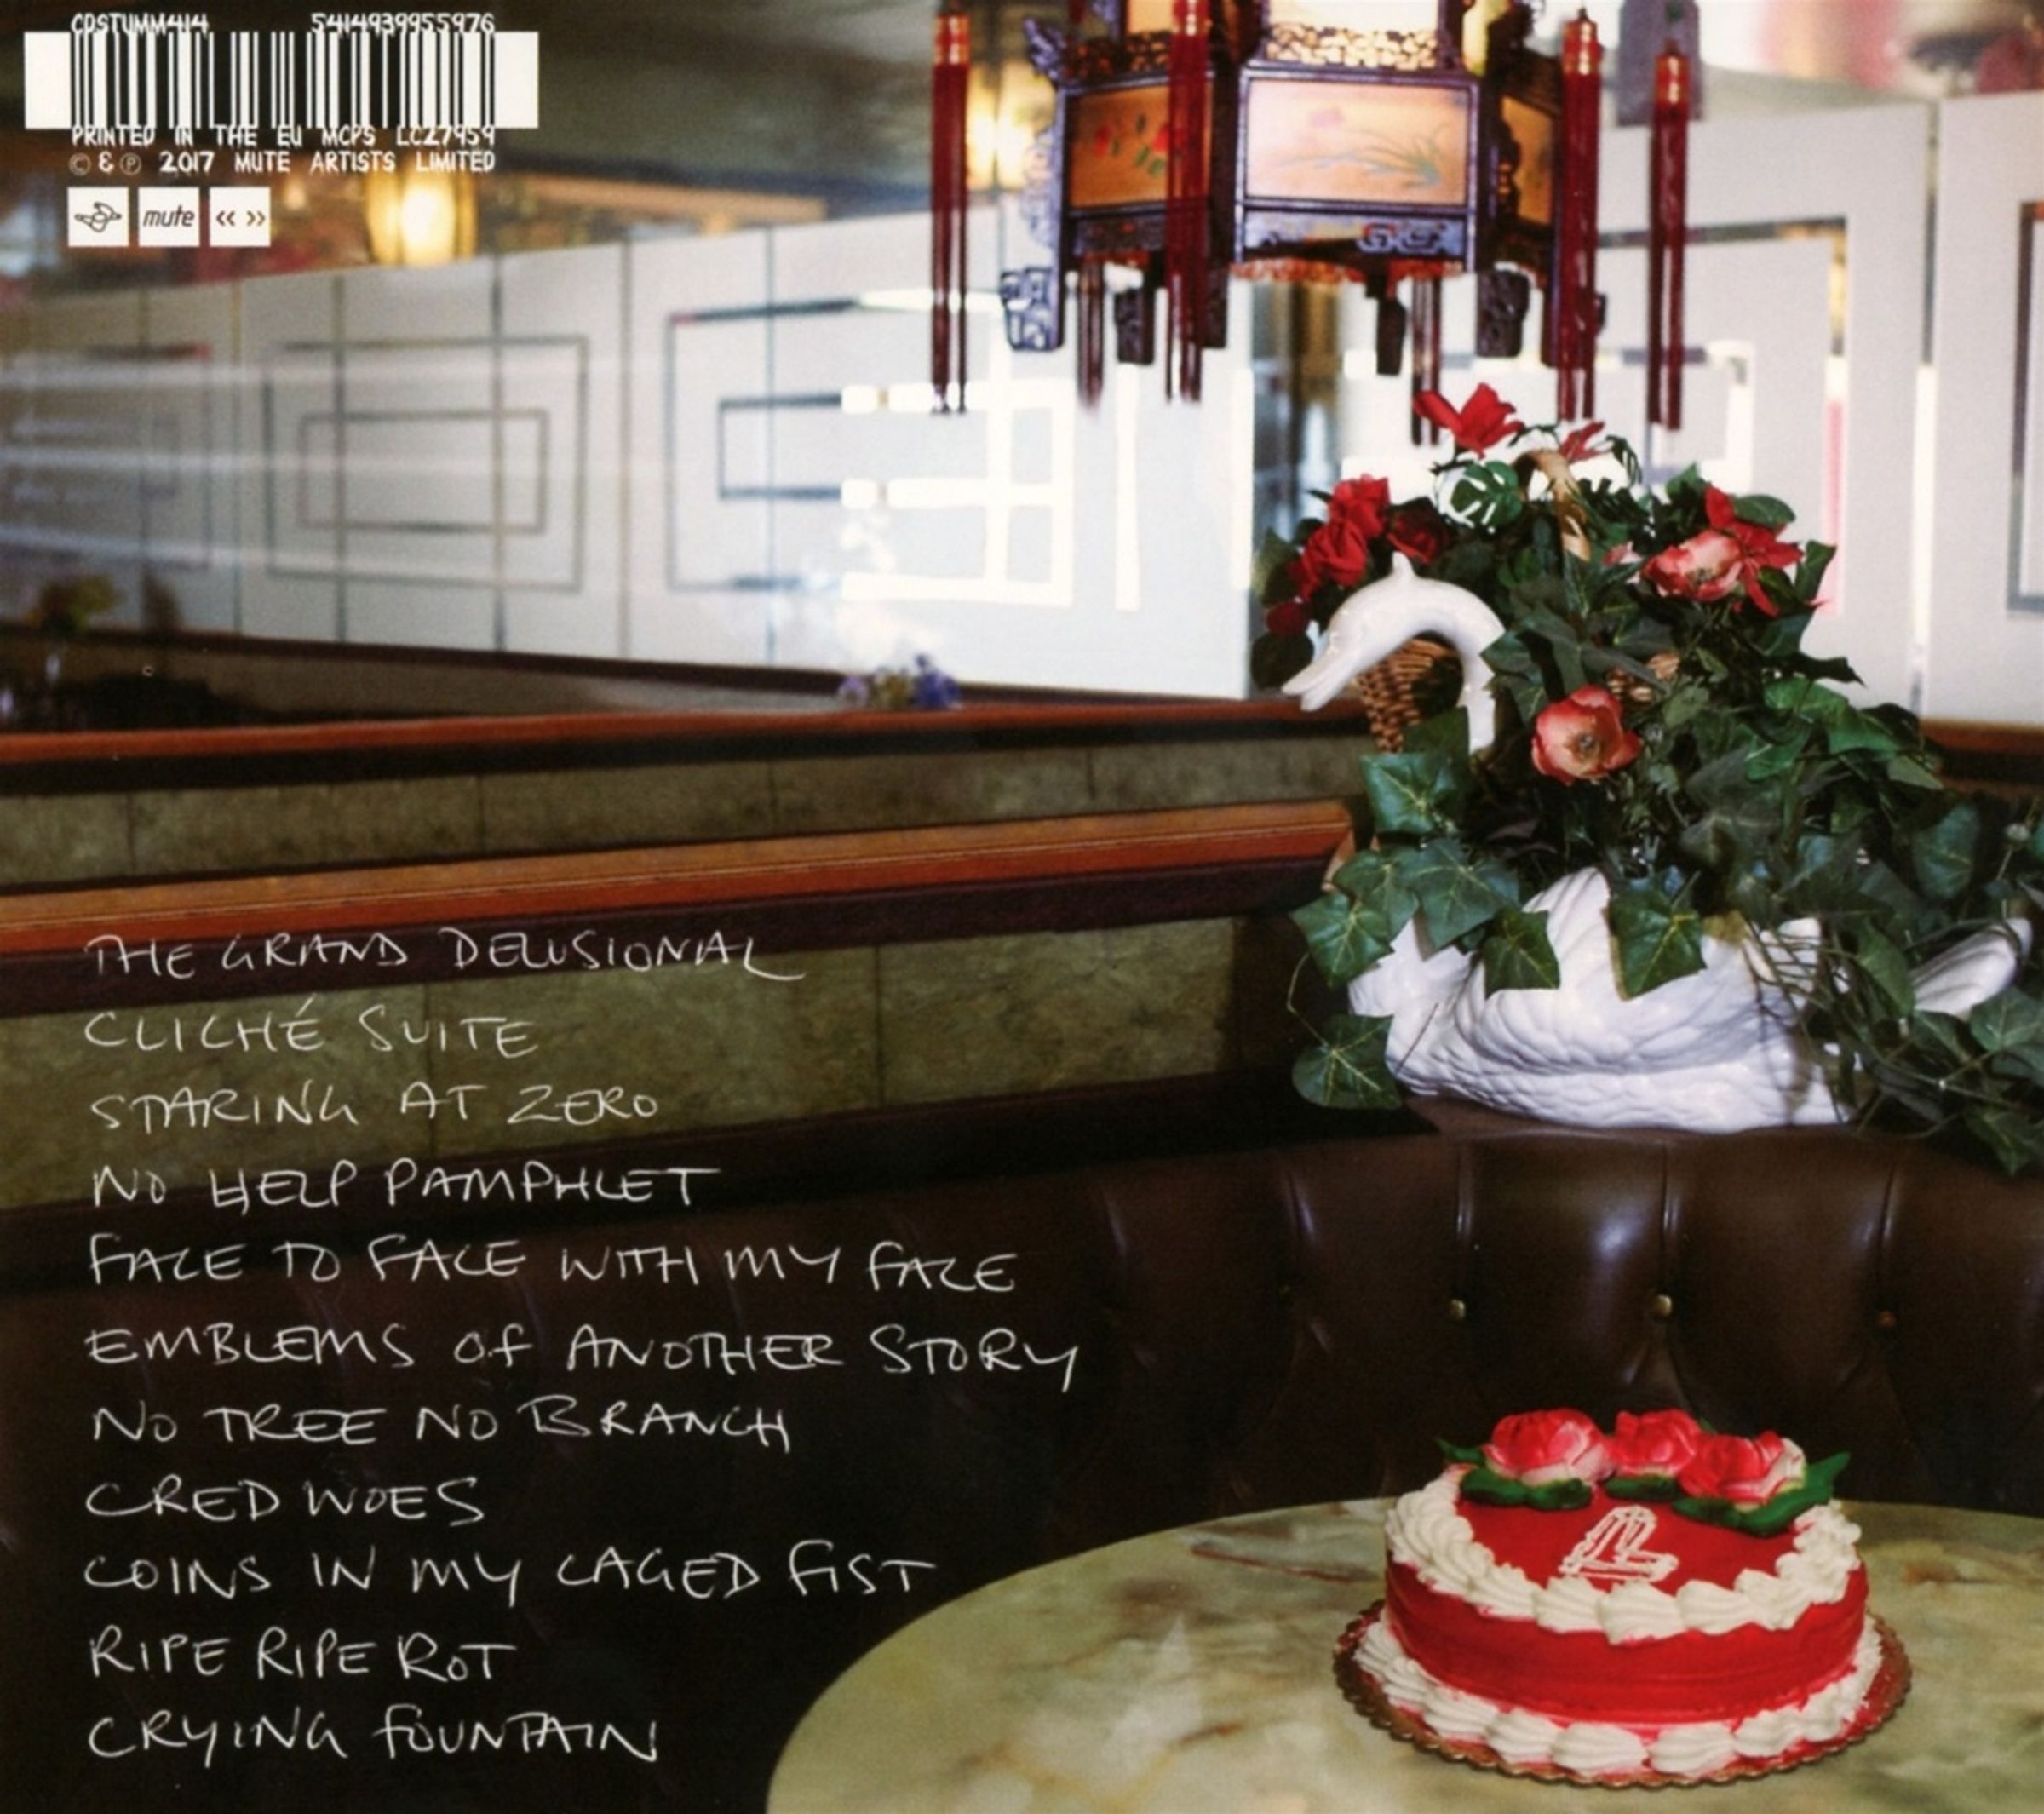 CDSTUMM414 5414939955976
PRINTED IN THE EU MCPS LC27959
© & ℗ 2017 MUTE ARTISTS LIMITED
mute << >>
THE GRAND DELUSIONAL
CLICHÉ SUITE
STARING AT ZERO
NO HELP PAMPHLET
FACE TO FACE WITH MY FACE
EMBLEMS Of ANOTHER STORY
NO TREE NO BRANCH
CRED WOES
COINS IN MY CAGED FIST
RIPE RIPE ROT
CRYING FOUNTAIN